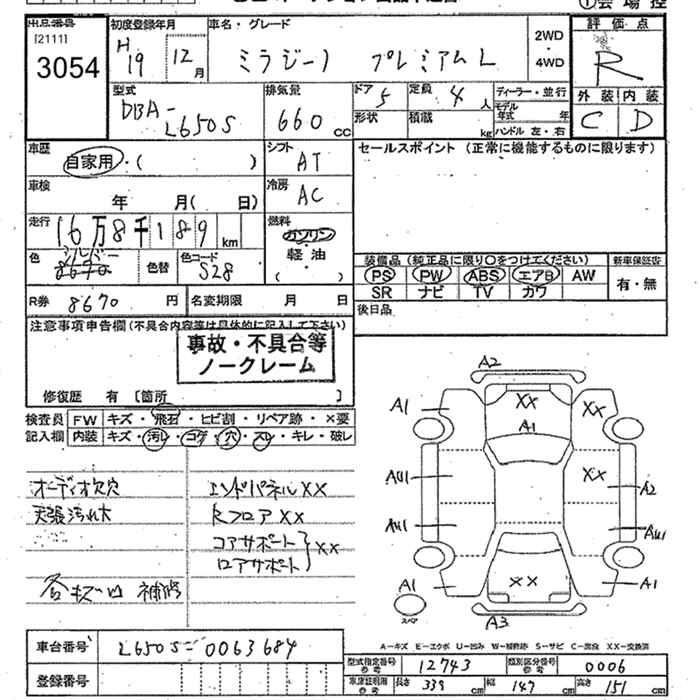 出品番号 初度登録年月 車名・グレード 2WD 評価点
[2111] H19 12月 ミラジーノ プレミアムL ・4WD R
3054
型式 排気量 ドア 定員 ディーラー・並行 外装 内装
DBA-L650S 660cc 5 4人 モデル年式 年 C D
形状 積載 kg ハンドル 左・右
車歴 自家用・( ) シフト AT セールスポイント (正常に機能するものに限ります)
車検 年 月( 日) 冷房 AC
走行 16万8千189km 燃料 ガソリン
色 シルバー 色替 色コード S28 軽油 ( )
装備品 (純正品に限り○をつけてください) 新車保証書
PS PW ABS エアB AW 有・無
SR ナビ TV カワ
R券 8670円 名変期限 月 日 後日品
注意事項申告欄(不具合内容等は具体的に記入して下さい)
事故・不具合等
ノークレーム
修復歴 有 〔箇所 〕
検査員 FW キズ・飛石・ヒビ割・リペア跡・×要
記入欄 内装 キズ・汚レ・コゲ・穴・スレ・キレ・破レ
A2
A1 XX XX
A1
AU1 XX A2
AU1 AU1
A1 XX A1
スペア A3
オーディオ欠穴 エンドパネルXX
天張汚れ大 RフロアXX
コアサポート
ロアサポート XX
各キズ凹 補修
A-キズ E-エクボ U-凹み W-補修跡 S-サビ C-腐食 XX-交換済
車台番号 L650S-0063684 型式指定番号 参考 12743 類別区分番号 参考 0006
登録番号 車庫証明用 参考 長さ 339cm 幅 147cm 高さ 151cm